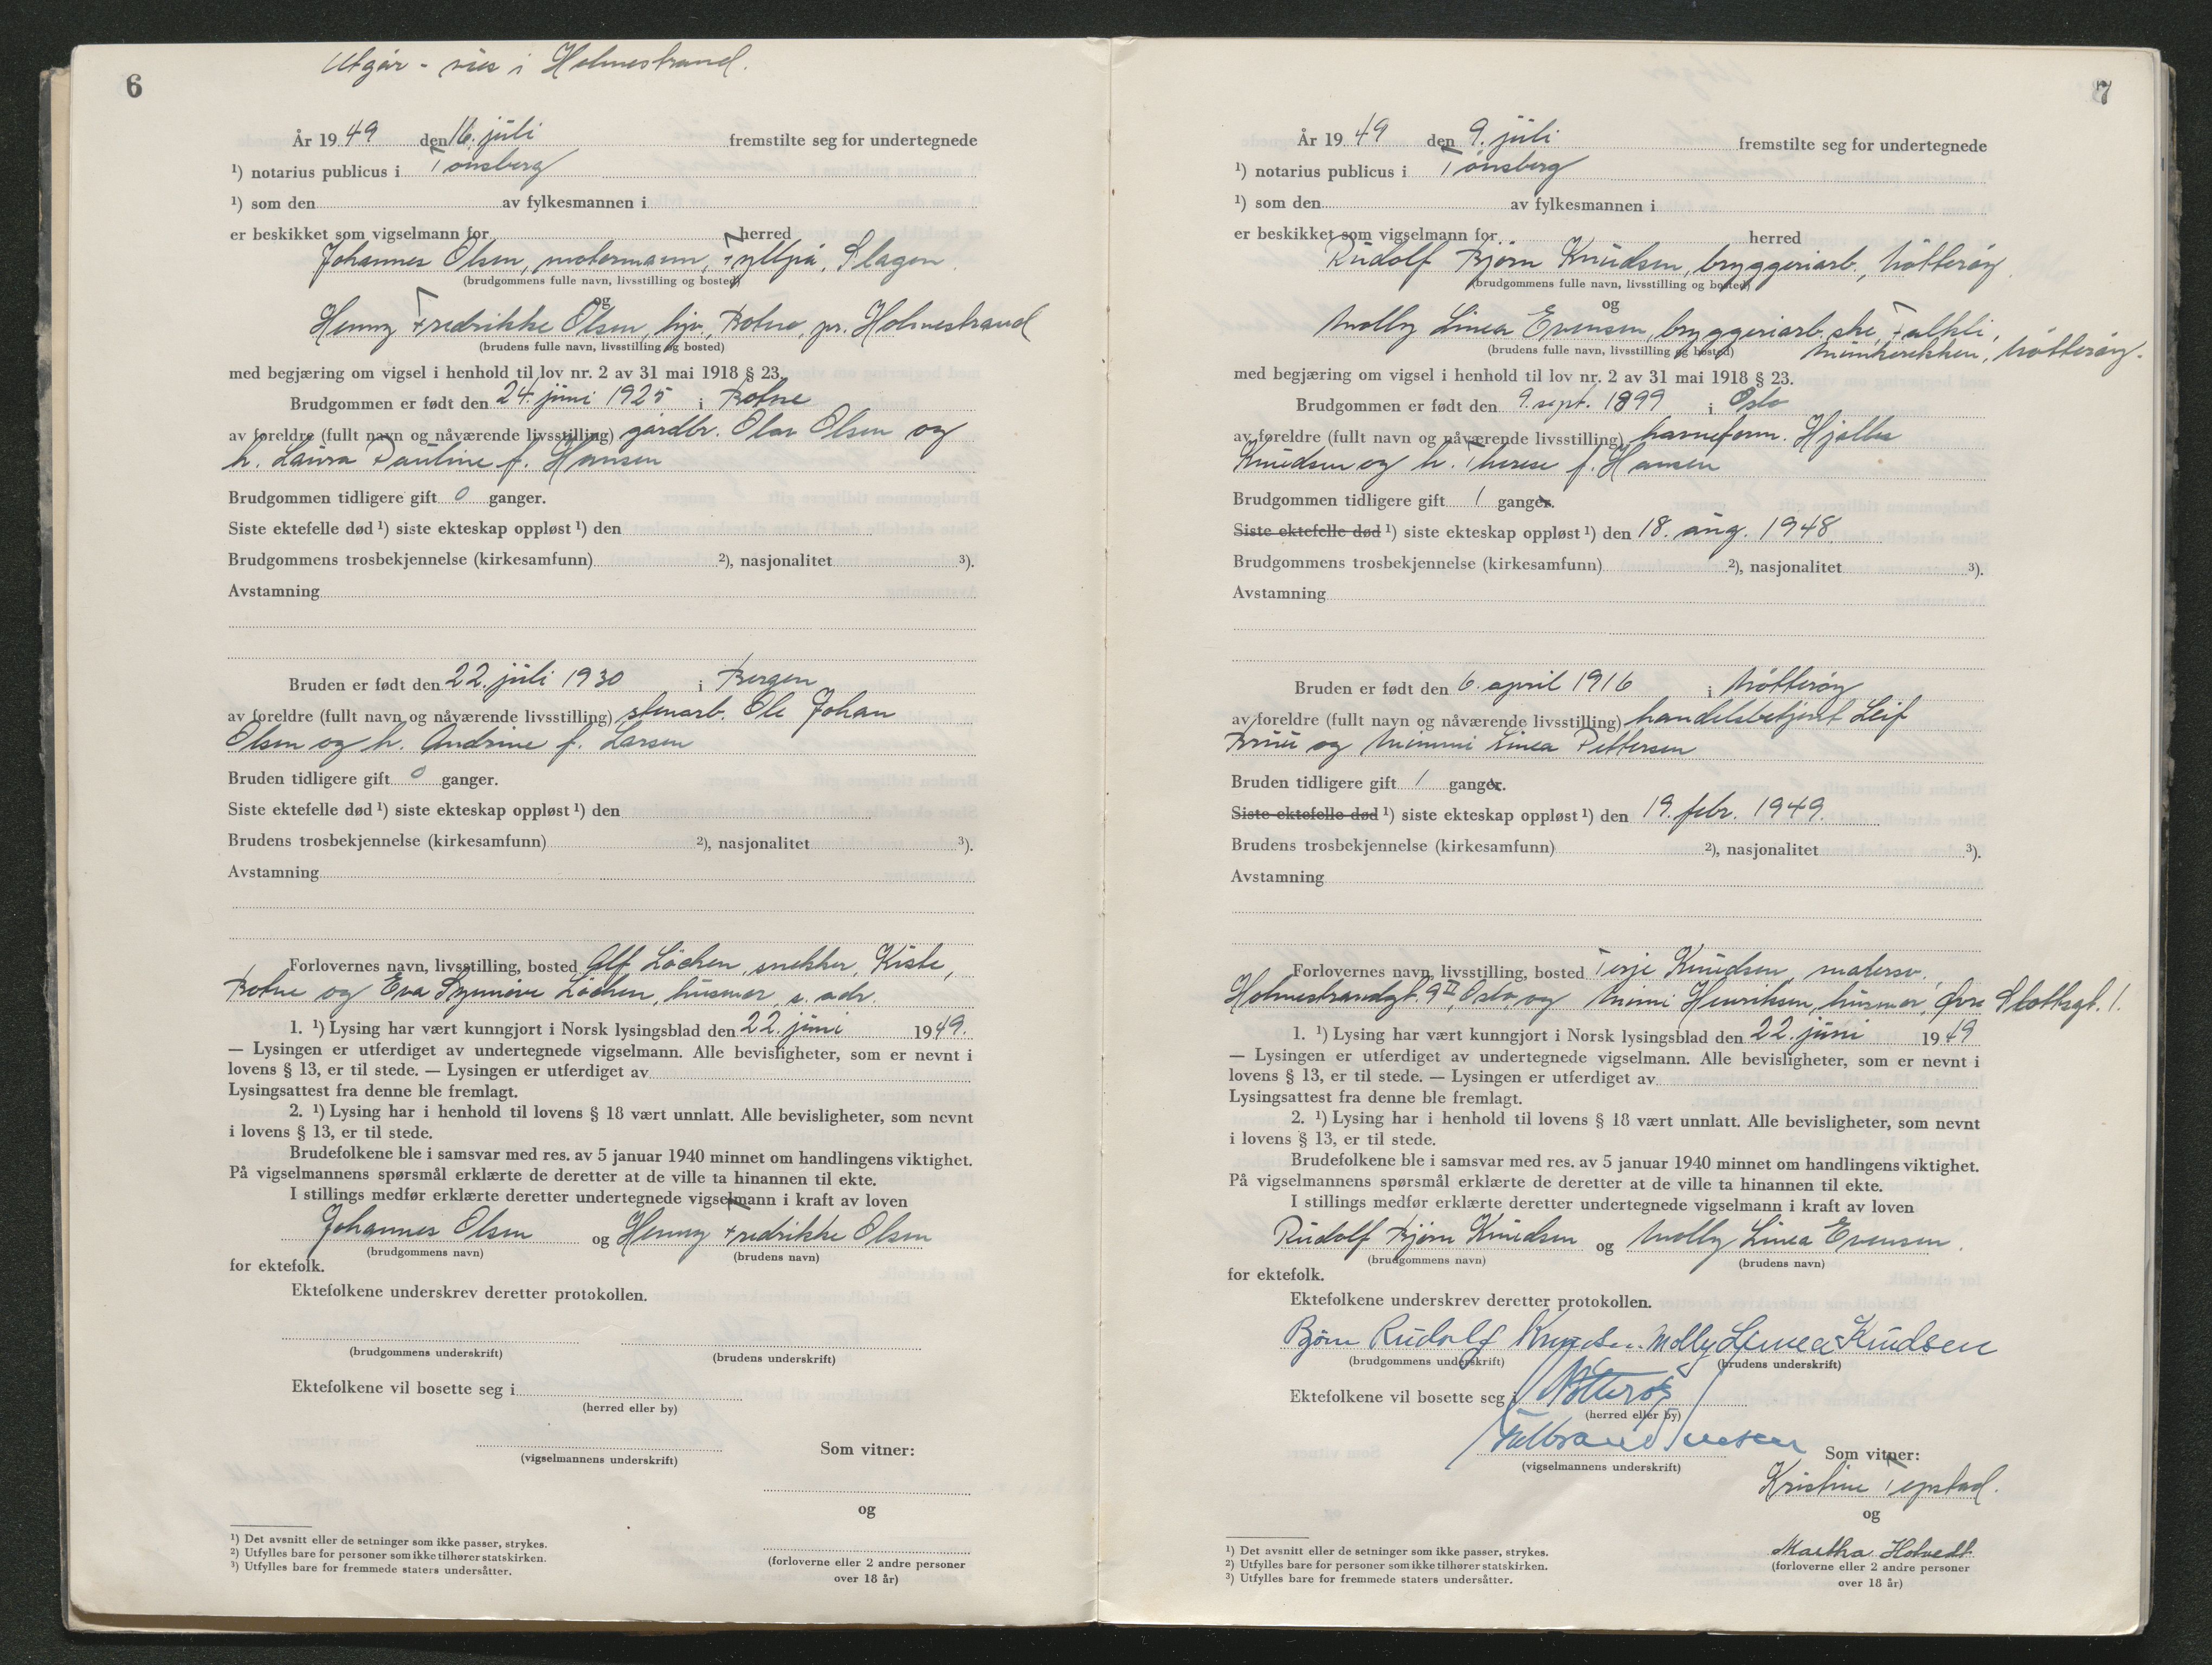 6
Utgår - vies i Holmestrand.
År 1949 den 16. juli fremstilte seg for undertegnede
¹) notarius publicus i Tønsberg
¹) som den av fylkesmannen i
er beskikket som vigselmann for herred
Johannes Olsen, motormann, Fyllpå, Slagen.
(brudgommens fulle navn, livsstilling og bosted)
og
Henny Fredrikke Olsen, hjv., Botne, pr. Holmestrand
(brudens fulle navn, livsstilling og bosted)
med begjæring om vigsel i henhold til lov nr. 2 av 31 mai 1918 § 23.
Brudgommen er født den 24. juni 1925 i Botne
av foreldre (fullt navn og nåværende livsstilling) gårdbr. Olav Olsen og
h. Laura Pauline f. Hansen
Brudgommen tidligere gift 0 ganger.
Siste ektefelle død ¹) siste ekteskap oppløst ¹) den
Brudgommens trosbekjennelse (kirkesamfunn) ²), nasjonalitet ³).
Avstamning
Bruden er født den 22. juli 1930 i Bergen
av foreldre (fullt navn og nåværende livsstilling) stenarb. Ole Johan
Olsen og h. Andrine f. Larsen
Bruden tidligere gift 0 ganger.
Siste ektefelle død ¹) siste ekteskap oppløst ¹) den
Brudens trosbekjennelse (kirkesamfunn) ²), nasjonalitet ³).
Avstamning
Forlovernes navn, livsstilling, bosted Alf Löchen, snekker, Kiste,
Botne og Eva Synnöve Löchen, husmor, s. adr.
1. ¹) Lysing har vært kunngjort i Norsk lysingsblad den 22. juni 1949.
— Lysingen er utferdiget av undertegnede vigselmann. Alle bevisligheter, som er nevnt i
lovens § 13, er til stede. — Lysingen er utferdiget av
Lysingsattest fra denne ble fremlagt.
2. ¹) Lysing har i henhold til lovens § 18 vært unnlatt. Alle bevisligheter, som nevnt
i lovens § 13, er til stede.
Brudefolkene ble i samsvar med res. av 5 januar 1940 minnet om handlingens viktighet.
På vigselmannens spørsmål erklærte de deretter at de ville ta hinannen til ekte.
I stillings medfør erklærte deretter undertegnede vigselmann i kraft av loven
Johannes Olsen og Henny Fredrikke Olsen
(brudgommens navn) (brudens navn)
for ektefolk.
Ektefolkene underskrev deretter protokollen.
(brudgommens underskrift) (brudens underskrift)
Ektefolkene vil bosette seg i
(herred eller by)
Som vitner:
(vigselmannens underskrift)
og
¹) Det avsnitt eller de setninger som ikke passer, strykes.
²) Utfylles bare for personer som ikke tilhører statskirken.
³) Utfylles bare for fremmede staters undersåtter.
(forloverne eller 2 andre personer
over 18 år)
7
År 1949 den 9. juli fremstilte seg for undertegnede
¹) notarius publicus i Tønsberg
¹) som den av fylkesmannen i
er beskikket som vigselmann for herred
Rudolf Bjørn Knudsen, bryggeriarb., Nötteröy.
(brudgommens fulle navn, livsstilling og bosted)
og
Molly Linea Evensen, bryggeriarb.ske, Falkli,
Munkerekken, Nötteröy.
(brudens fulle navn, livsstilling og bosted)
med begjæring om vigsel i henhold til lov nr. 2 av 31 mai 1918 § 23.
Brudgommen er født den 9. sept. 1899 i Oslo
av foreldre (fullt navn og nåværende livsstilling) havneform. Hjalm
Knudsen og h. Therese f. Hansen
Brudgommen tidligere gift 1 ganger.
Siste ektefelle død ¹) siste ekteskap oppløst ¹) den 18. aug. 1948
Brudgommens trosbekjennelse (kirkesamfunn) ²), nasjonalitet ³).
Avstamning
Bruden er født den 6. april 1916 i Nötteröy
av foreldre (fullt navn og nåværende livsstilling) handelsbetjent Leif
Bruu og Mimmi Linea Pettersen
Bruden tidligere gift 1 ganger.
Siste ektefelle død ¹) siste ekteskap oppløst ¹) den 19. febr. 1949.
Brudens trosbekjennelse (kirkesamfunn) ²), nasjonalitet ³).
Avstamning
Forlovernes navn, livsstilling, bosted Terje Knudsen, matersv.
Holmestrandgt. 9 II, Oslo, og Mimi Henriksen, husmor, Øvre Slottsgt. 1.
1. ¹) Lysing har vært kunngjort i Norsk lysingsblad den 22. juni 1949
— Lysingen er utferdiget av undertegnede vigselmann. Alle bevisligheter, som er nevnt i
lovens § 13, er til stede. — Lysingen er utferdiget av
Lysingsattest fra denne ble fremlagt.
2. ¹) Lysing har i henhold til lovens § 18 vært unnlatt. Alle bevisligheter, som nevnt
i lovens § 13, er til stede.
Brudefolkene ble i samsvar med res. av 5 januar 1940 minnet om handlingens viktighet.
På vigselmannens spørsmål erklærte de deretter at de ville ta hinannen til ekte.
I stillings medfør erklærte deretter undertegnede vigselmann i kraft av loven
Rudolf Bjørn Knudsen og Molly Linea Evensen.
(brudgommens navn) (brudens navn)
for ektefolk.
Ektefolkene underskrev deretter protokollen.
Bjørn Rudolf Knudsen Molly Linea Knudsen
(brudgommens underskrift) (brudens underskrift)
Ektefolkene vil bosette seg i Nötteröy
(herred eller by)
Som vitner:
(vigselmannens underskrift)
Kristine Tepstad.
og
Martha Hotvedt
¹) Det avsnitt eller de setninger som ikke passer, strykes.
²) Utfylles bare for personer som ikke tilhører statskirken.
³) Utfylles bare for fremmede staters undersåtter.
(forloverne eller 2 andre personer
over 18 år)